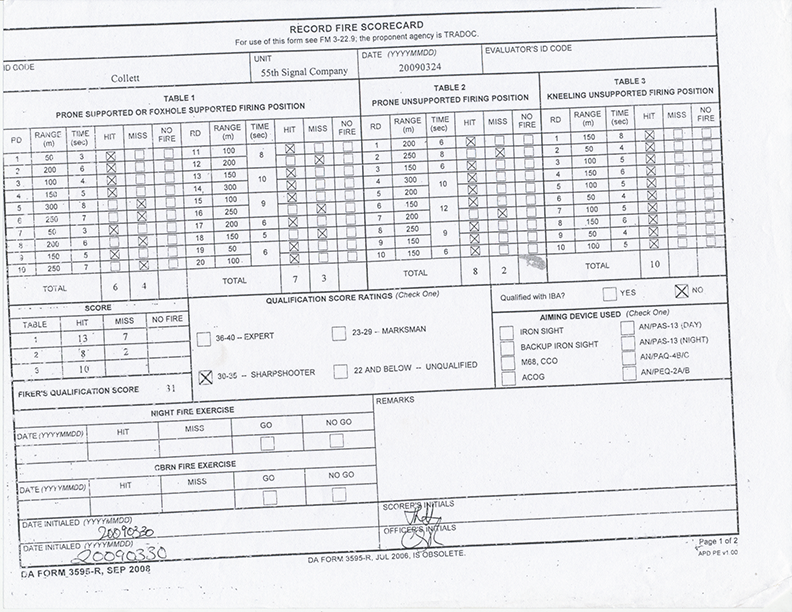 RECORD FIRE SCORECARD
For use of this form see FM 3-22.9; the proponent agency is TRADOC.
ID CODE
Collett
UNIT
55th Signal Company
DATE (YYYYMMDD)
20090324
EVALUATOR'S ID CODE
TABLE 1
PRONE SUPPORTED OR FOXHOLE SUPPORTED FIRING POSITION
RD RANGE (m) TIME (sec) HIT MISS NO FIRE
1 50 3
2 200 6
3 100 4
4 150 5
5 300 8
6 250 7
7 50 3
8 200 6
9 150 5
10 250 7
TOTAL 6 4
RD RANGE (m) TIME (sec) HIT MISS NO FIRE
11 100 8
12 200
13 150 10
14 300
15 100 9
16 250
17 200 6
18 150 5
19 50 6
20 100
TOTAL 7 3
TABLE 2
PRONE UNSUPPORTED FIRING POSITION
RD RANGE (m) TIME (sec) HIT MISS NO FIRE
1 200 6
2 250 8
3 150 6
4 300 10
5 200
6 150 12
7 200
8 250 9
9 150
10 150 6
TOTAL 8 2
TABLE 3
KNEELING UNSUPPORTED FIRING POSITION
RD RANGE (m) TIME (sec) HIT MISS NO FIRE
1 150 8
2 50 4
3 100 5
4 150 6
5 100 5
6 50 4
7 100 5
8 150 6
9 50 4
10 100 5
TOTAL 10
SCORE
TABLE HIT MISS NO FIRE
1 13 7
2 8 2
3 10
FIRER'S QUALIFICATION SCORE 31
QUALIFICATION SCORE RATINGS (Check One)
36-40 -- EXPERT
23-29 -- MARKSMAN
30-35 -- SHARPSHOOTER
22 AND BELOW -- UNQUALIFIED
Qualified with IBA? YES NO
AIMING DEVICE USED (Check One)
IRON SIGHT
BACKUP IRON SIGHT
M68, CCO
ACOG
AN/PAS-13 (DAY)
AN/PAS-13 (NIGHT)
AN/PAQ-4B/C
AN/PEQ-2A/B
NIGHT FIRE EXERCISE
DATE (YYYYMMDD) HIT MISS GO NO GO
CBRN FIRE EXERCISE
DATE (YYYYMMDD) HIT MISS GO NO GO
REMARKS
DATE INITIALED (YYYYMMDD)
20090330
SCORER'S INITIALS
DATE INITIALED (YYYYMMDD)
20090330
OFFICER'S INITIALS
DA FORM 3595-R, SEP 2008
DA FORM 3595-R, JUL 2006, IS OBSOLETE.
Page 1 of 2
APD PE v1.00